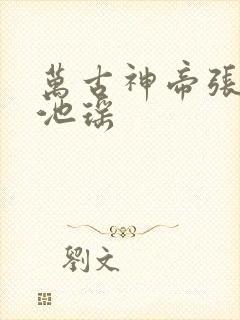 萬古神帝張
池瑶
劉文